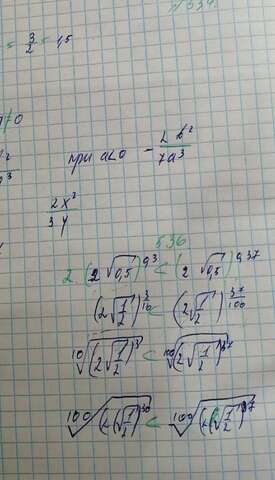 = 3/2 = 1,5
≠0
при a<0 -2b²/7a³
2x²/3y
536
2. (2√0,5)^0,3 < (2√0,5)^0,37
(2√1/2)^3/10 < (2√1/2)^37/100
¹⁰√(2√1/2)³ < ¹⁰⁰√(2√1/2)³⁷
¹⁰⁰√(2√1/2)³⁰ < ¹⁰⁰√(2√1/2)³⁷